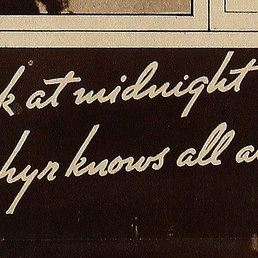 k at midnight
hyr knows all a